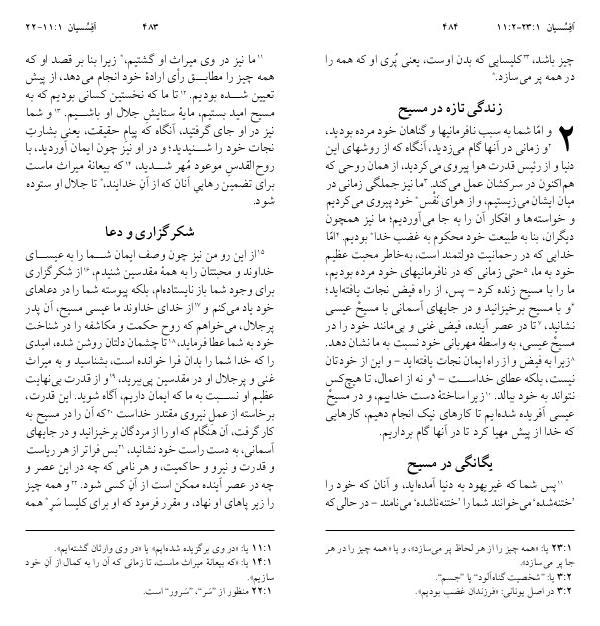 اَفِسُسیان ۱۱:۱-۲۲
۴۸۳
۱۱ما نیز در وی میراث او گشتیم،* زیرا بنا بر قصد او که
همه چیز را مطابق رأی ارادهٔ خود انجام می‌دهد، از پیش
تعیین شده بودیم. ۱۲تا ما که نخستین کسانی بودیم که به
مسیح امید بستیم، مایهٔ ستایشِ جلال او باشیم. ۱۳و شما
نیز در او جای گرفتید، آنگاه که پیام حقیقت، یعنی بشارتِ
نجات خود را شنیدید؛ و در او نیز چون ایمان آوردید، با
روح‌القدسِ موعود مُهر شدید، ۱۴که بیعانهٔ میراث ماست
برای تضمین رهاییِ آنان که از آنِ خدایند،* تا جلال او ستوده
شود.
شکرگزاری و دعا
۱۵از این رو من نیز چون وصف ایمان شما را به عیسای
خداوند و محبتتان را به همهٔ مقدسین شنیدم، ۱۶از شکرگزاری
برای وجود شما باز نایستاده‌ام، بلکه پیوسته شما را در دعاهای
خود یاد می‌کنم و ۱۷از خدای خداوند ما عیسی مسیح، آن پدر
پرجلال، می‌خواهم که روح حکمت و مکاشفه را در شناخت
خود به شما عطا فرماید، ۱۸تا چشمان دلتان روشن شده، امیدی
را که خدا شما را بدان فرا خوانده است، بشناسید و به میراث
غنی و پرجلال او در مقدسین پی‌برید، ۱۹و از قدرت بی‌نهایت
عظیم او نسبت به ما که ایمان داریم، آگاه شوید. این قدرت،
برخاسته از عمل نیروی مقتدر خداست ۲۰که آن را در مسیح به
کار گرفت، آن هنگام که او را از مردگان برخیزانید و در جایهای
آسمانی، به دست راست خود نشانید، ۲۱بس فراتر از هر ریاست
و قدرت و نیرو و حاکمیت، و هر نامی که چه در این عصر و
چه در عصر آینده ممکن است از آنِ کسی شود. ۲۲و همه چیز
را زیر پاهای او نهاد، و مقرر فرمود که او برای کلیسا سَر* همه
۱۱:۱ یا: «در وی برگزیده شده‌ایم» یا «در وی وارثان گشته‌ایم».
۱۴:۱ یا: «که بیعانهٔ میراث ماست، تا زمانی که آن را به کمال از آنِ خود
سازیم».
۲۲:۱ منظور از ”سَر“، ”سَرور“ است.
۴۸۴
اَفِسُسیان ۲۳:۱-۱۱:۲
چیز باشد، ۲۳کلیسایی که بدن اوست، یعنی پُری او که همه را
در همه پر می‌سازد.*
زندگی تازه در مسیح
۲ و امّا شما به سبب نافرمانیها و گناهان خود مرده بودید،
۲و زمانی در آنها گام می‌زدید، آنگاه که از روشهای این
دنیا و از رئیس قدرت هوا پیروی می‌کردید، از همان روحی که
هم‌اکنون در سرکشان عمل می‌کند. ۳ما نیز جملگی زمانی در
میان ایشان می‌زیستیم، و از هوای نَفْس* خود پیروی می‌کردیم
و خواسته‌ها و افکار آن را به جا می‌آوردیم؛ ما نیز همچون
دیگران، بنا به طبیعت خود محکوم به غضب خدا* بودیم. ۴امّا
خدایی که در رحمانیت دولتمند است، به‌خاطر محبت عظیم
خود به ما، ۵حتی زمانی که در نافرمانیهای خود مرده بودیم،
ما را با مسیح زنده کرد - پس، از راه فیض نجات یافته‌اید؛
۶و با مسیح برخیزانید و در جایهای آسمانی با مسیحْ عیسی
نشانید، ۷تا در عصر آینده، فیض غنی و بی‌مانند خود را در
مسیحْ عیسی، به واسطهٔ مهربانی خود نسبت به ما نشان دهد.
۸زیرا به فیض و از راه ایمان نجات یافته‌اید - و این از خودتان
نیست، بلکه عطای خداست - ۹و نه از اعمال، تا هیچ‌کس
نتواند به خود ببالد. ۱۰زیرا ساختهٔ دست خداییم، و در مسیحْ
عیسی آفریده شده‌ایم تا کارهای نیک انجام دهیم، کارهایی
که خدا از پیش مهیا کرد تا در آنها گام برداریم.
یگانگی در مسیح
۱۱پس شما که غیریهود به دنیا آمده‌اید، و آنان که خود را
’ختنه‌شده‘ می‌خوانند شما را ’ختنه‌ناشده‘ می‌نامند - در حالی که
۲۳:۱ یا: «همه چیز را از هر لحاظ پر می‌سازد»، و یا «همه چیز را در هر
جا پر می‌سازد».
۳:۲ یا: ”شخصیت گناه‌آلود“ یا ”جسم“.
۳:۲ در اصل یونانی: «فرزندان غضب بودیم».